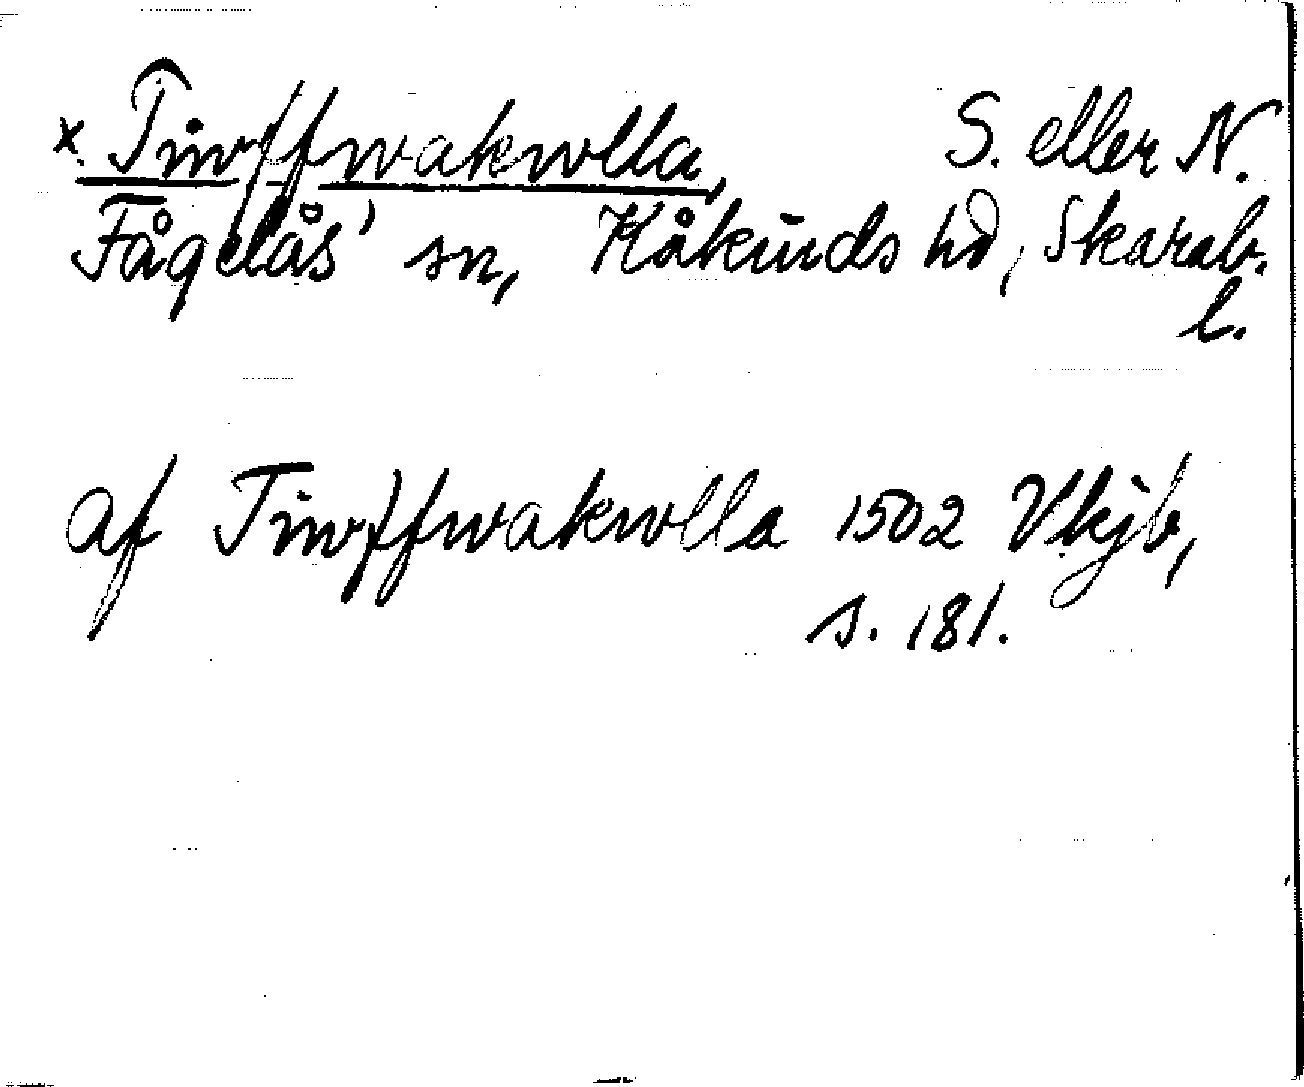 x. Tiwffwakwlla, S. eller N.
Fågelås' sn, Kåkinds hd, Skarab.
l.
af Tiwffwakwlla 1502 Vkjb,
s. 181.